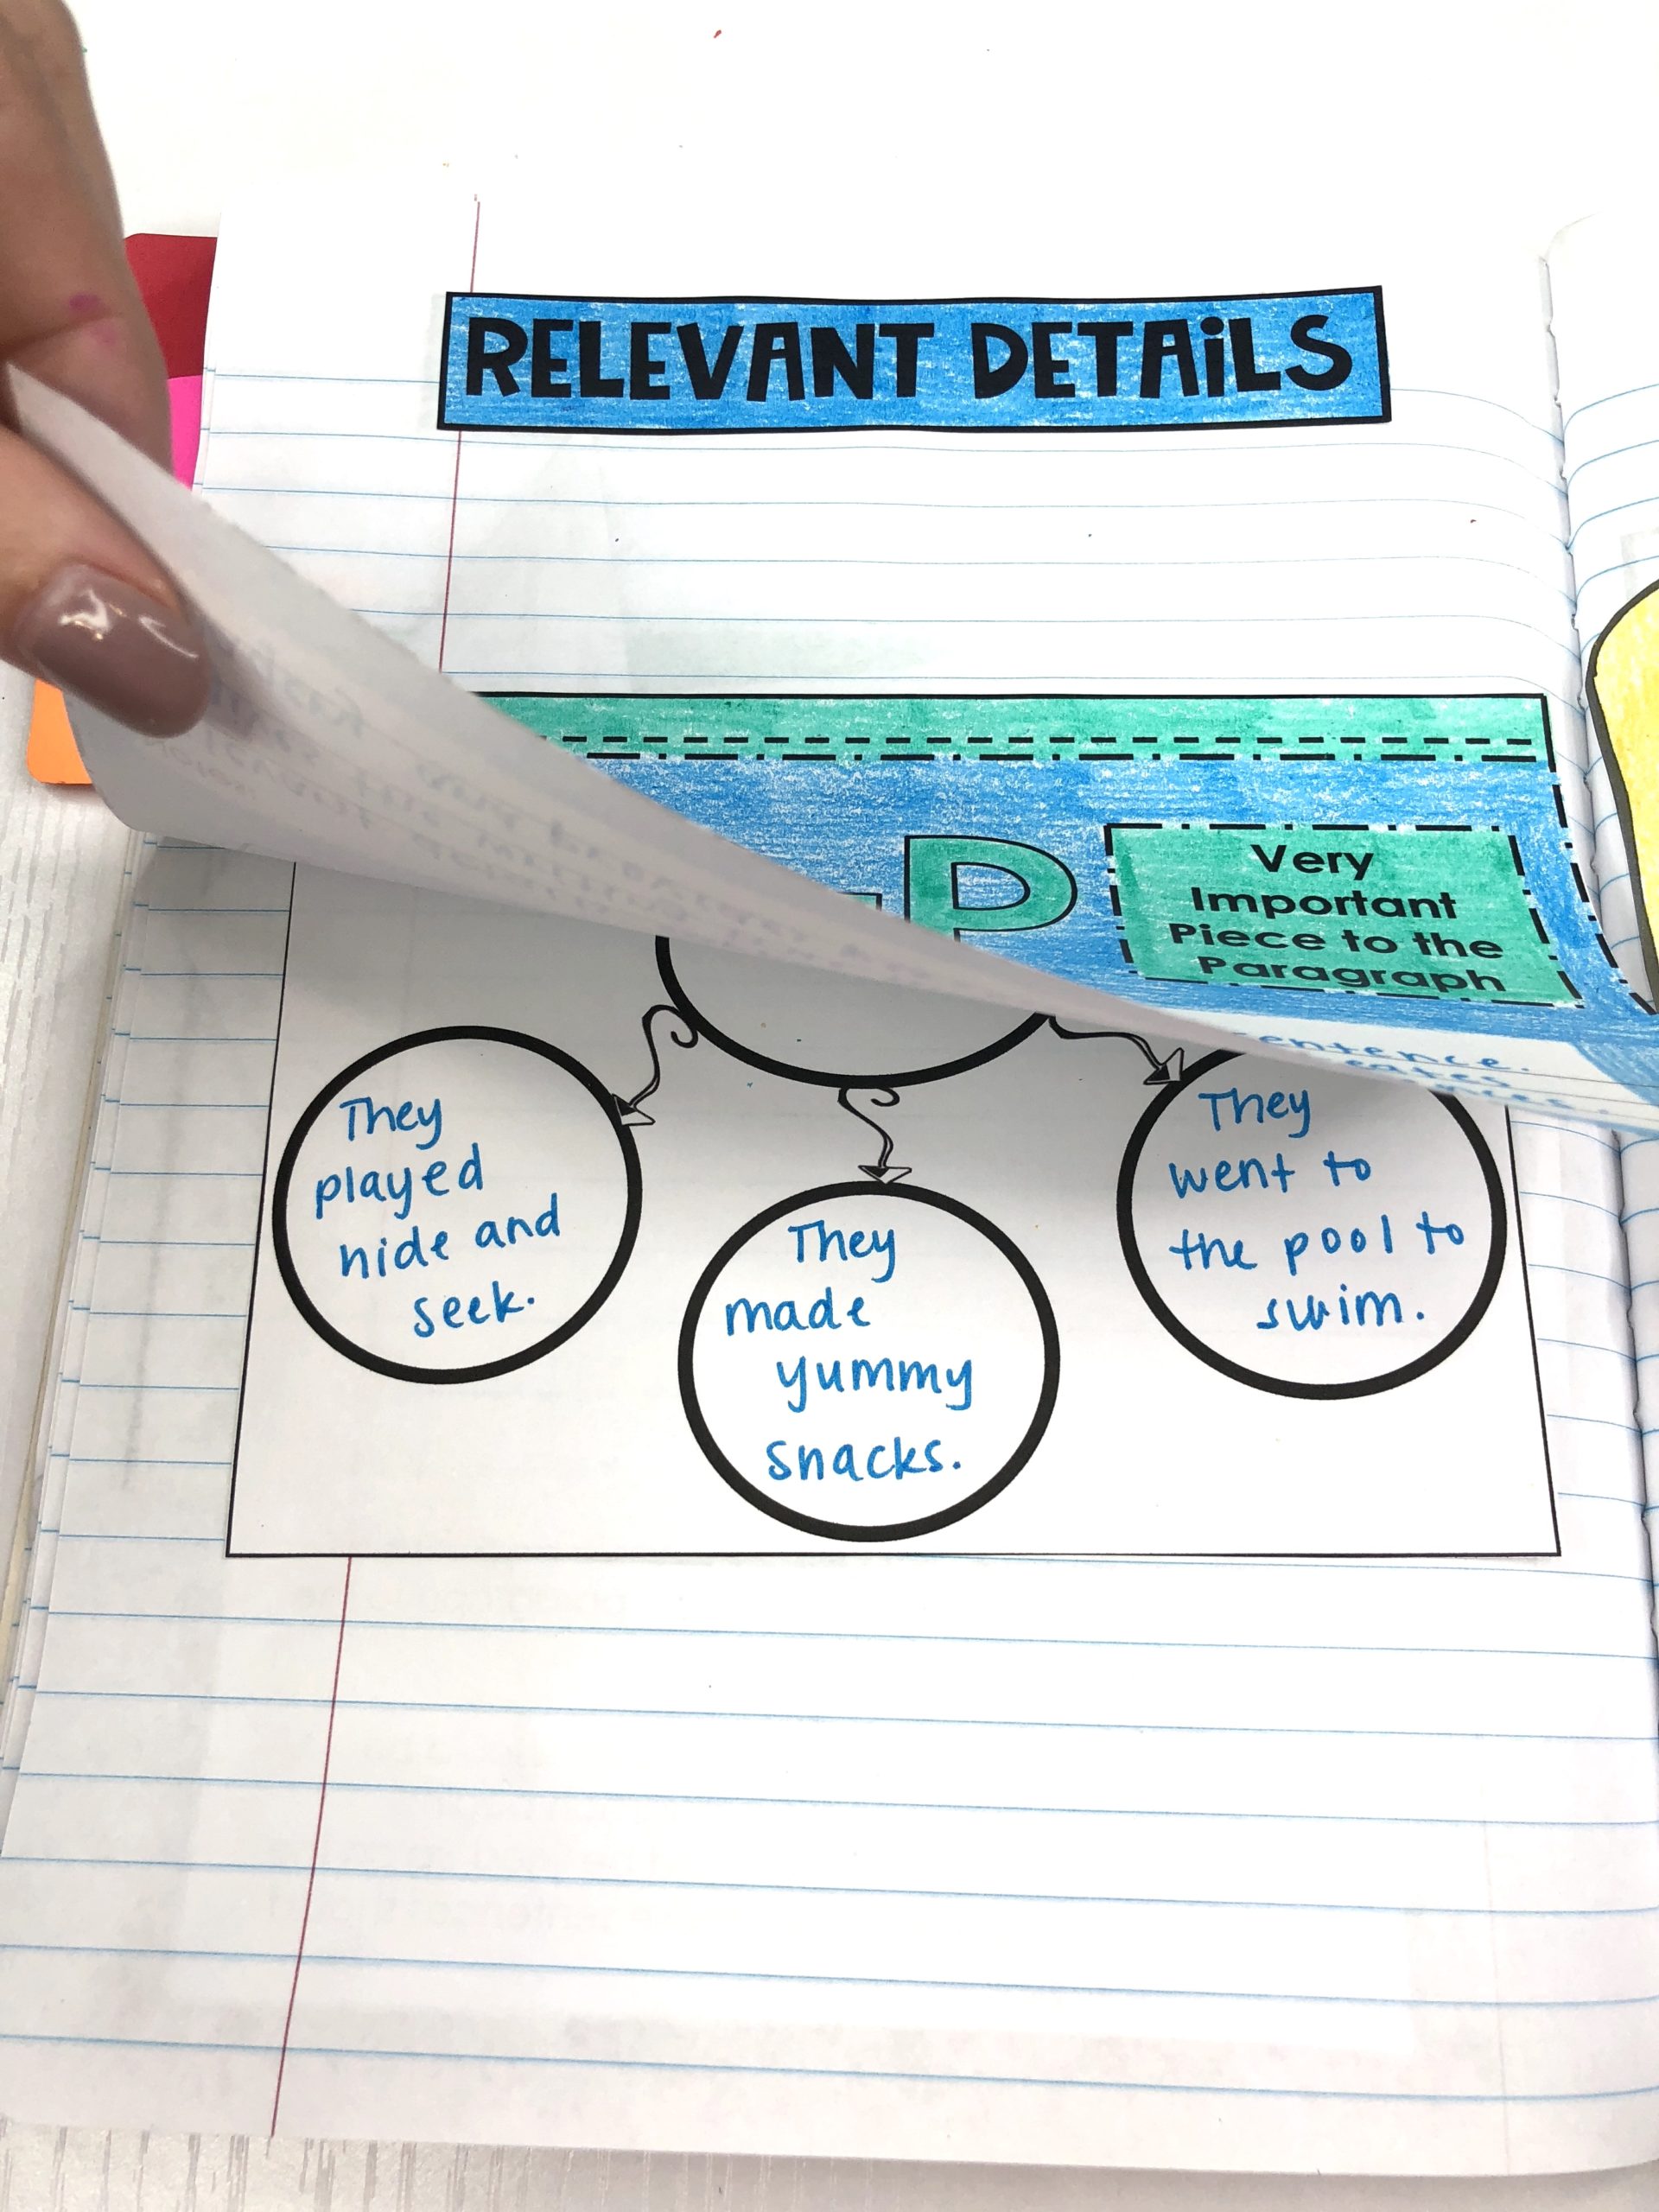 RELEVANT DETAILS
-P
Very
Important
Piece to the
Paragraph
entence.
They
played
hide and
seek.
They
made
yummy
snacks.
They
went to
the pool to
swim.